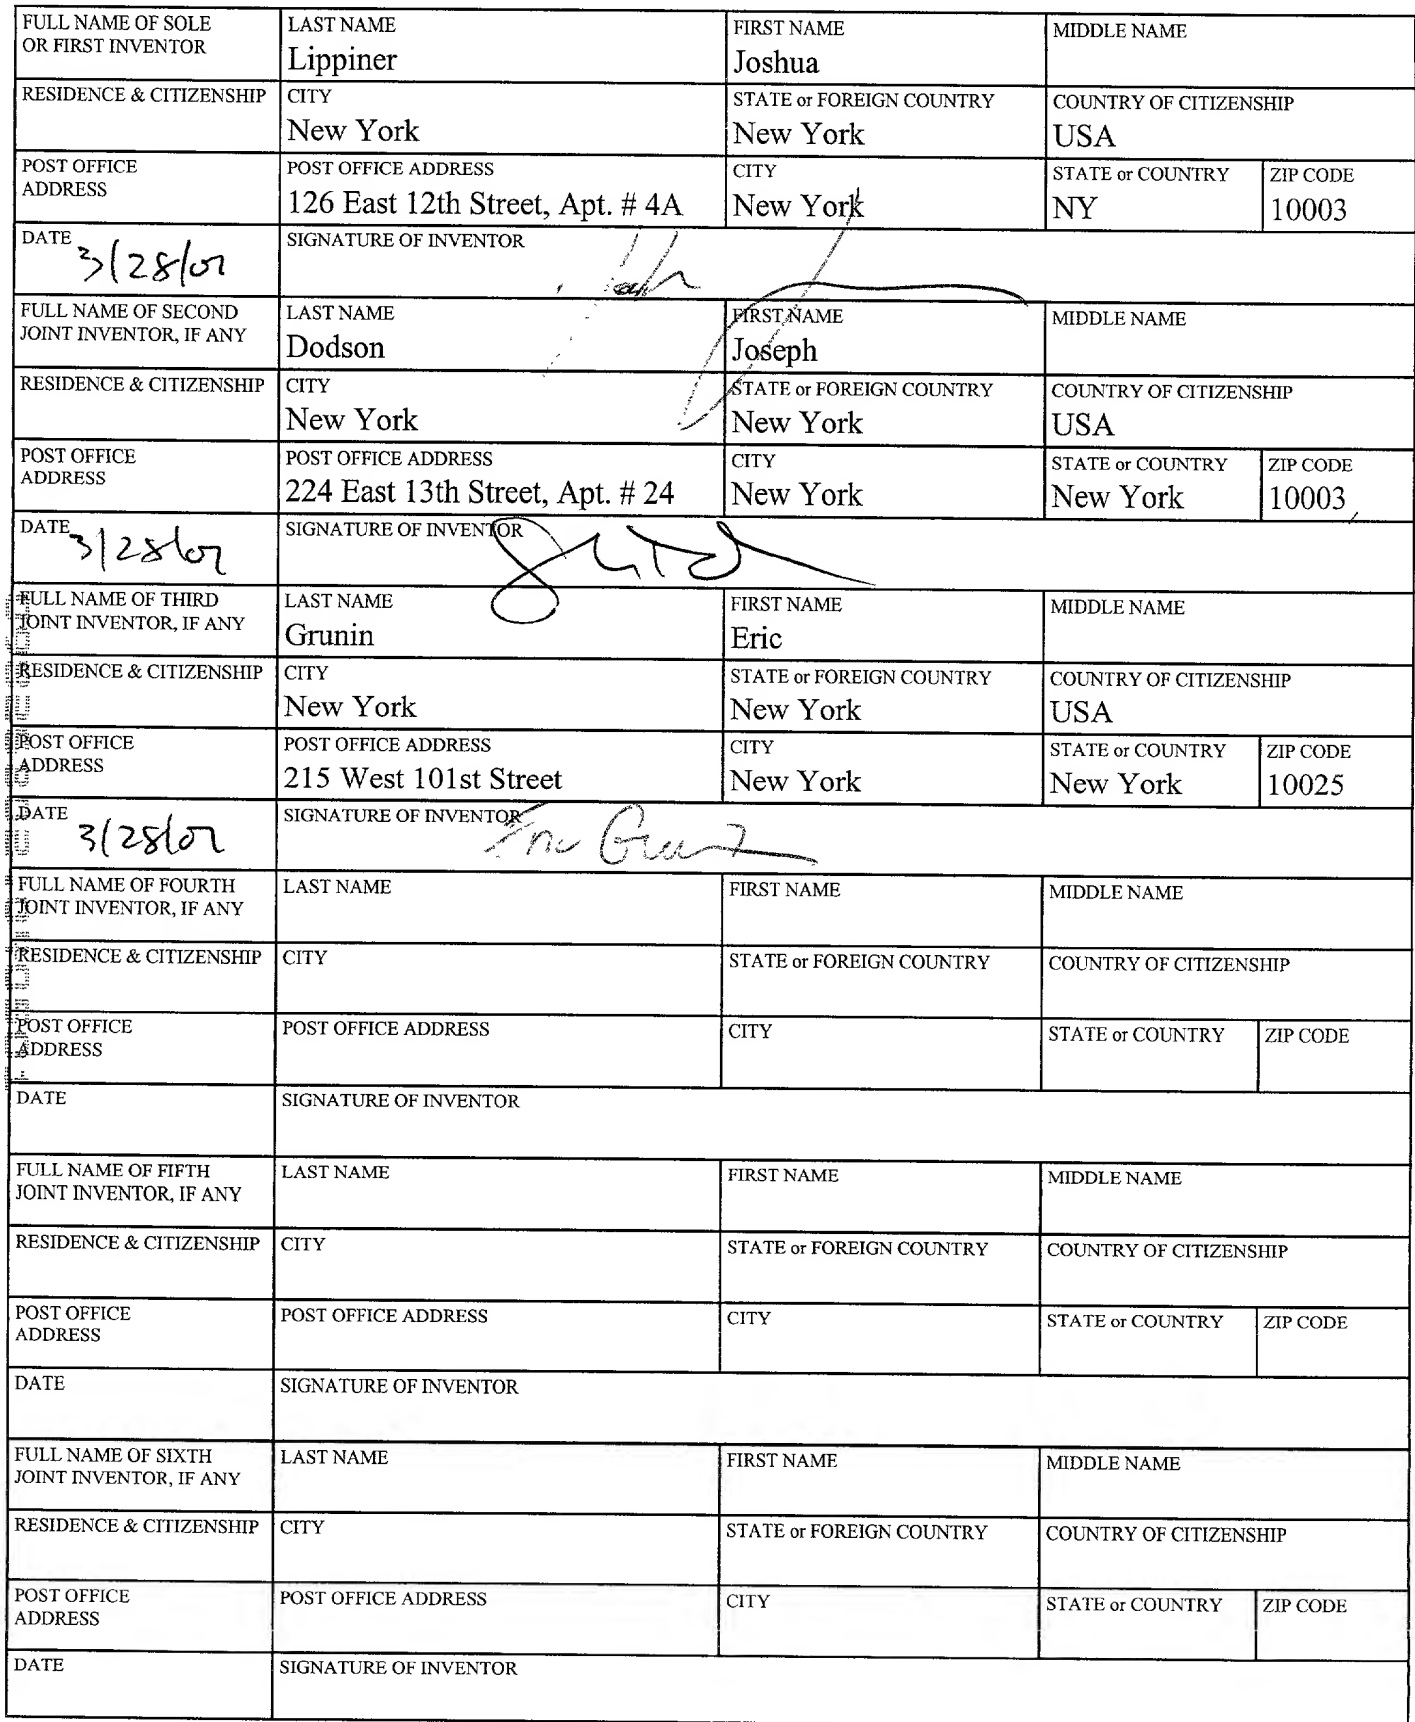 FULL NAME OF SOLE OR FIRST INVENTOR
LAST NAME
Lippiner
FIRST NAME
Joshua
MIDDLE NAME
RESIDENCE & CITIZENSHIP
CITY
New York
STATE or FOREIGN COUNTRY
New York
COUNTRY OF CITIZENSHIP
USA
POST OFFICE
ADDRESS
POST OFFICE ADDRESS
126 East 12th Street, Apt. # 4A
CITY
New York
STATE or COUNTRY
NY
ZIP CODE
10003
DATE
3/28/01
SIGNATURE OF INVENTOR
FULL NAME OF SECOND
JOINT INVENTOR, IF ANY
LAST NAME
Dodson
FIRST NAME
Joseph
MIDDLE NAME
RESIDENCE & CITIZENSHIP
CITY
New York
STATE or FOREIGN COUNTRY
New York
COUNTRY OF CITIZENSHIP
USA
POST OFFICE
ADDRESS
POST OFFICE ADDRESS
224 East 13th Street, Apt. # 24
CITY
New York
STATE or COUNTRY
New York
ZIP CODE
10003
DATE
3/28/01
SIGNATURE OF INVENTOR
FULL NAME OF THIRD
JOINT INVENTOR, IF ANY
LAST NAME
Grunin
FIRST NAME
Eric
MIDDLE NAME
RESIDENCE & CITIZENSHIP
CITY
New York
STATE or FOREIGN COUNTRY
New York
COUNTRY OF CITIZENSHIP
USA
POST OFFICE
ADDRESS
POST OFFICE ADDRESS
215 West 101st Street
CITY
New York
STATE or COUNTRY
New York
ZIP CODE
10025
DATE
3/28/01
SIGNATURE OF INVENTOR
FULL NAME OF FOURTH
JOINT INVENTOR, IF ANY
LAST NAME
FIRST NAME
MIDDLE NAME
RESIDENCE & CITIZENSHIP
CITY
STATE or FOREIGN COUNTRY
COUNTRY OF CITIZENSHIP
POST OFFICE
ADDRESS
POST OFFICE ADDRESS
CITY
STATE or COUNTRY
ZIP CODE
DATE
SIGNATURE OF INVENTOR
FULL NAME OF FIFTH
JOINT INVENTOR, IF ANY
LAST NAME
FIRST NAME
MIDDLE NAME
RESIDENCE & CITIZENSHIP
CITY
STATE or FOREIGN COUNTRY
COUNTRY OF CITIZENSHIP
POST OFFICE
ADDRESS
POST OFFICE ADDRESS
CITY
STATE or COUNTRY
ZIP CODE
DATE
SIGNATURE OF INVENTOR
FULL NAME OF SIXTH
JOINT INVENTOR, IF ANY
LAST NAME
FIRST NAME
MIDDLE NAME
RESIDENCE & CITIZENSHIP
CITY
STATE or FOREIGN COUNTRY
COUNTRY OF CITIZENSHIP
POST OFFICE
ADDRESS
POST OFFICE ADDRESS
CITY
STATE or COUNTRY
ZIP CODE
DATE
SIGNATURE OF INVENTOR